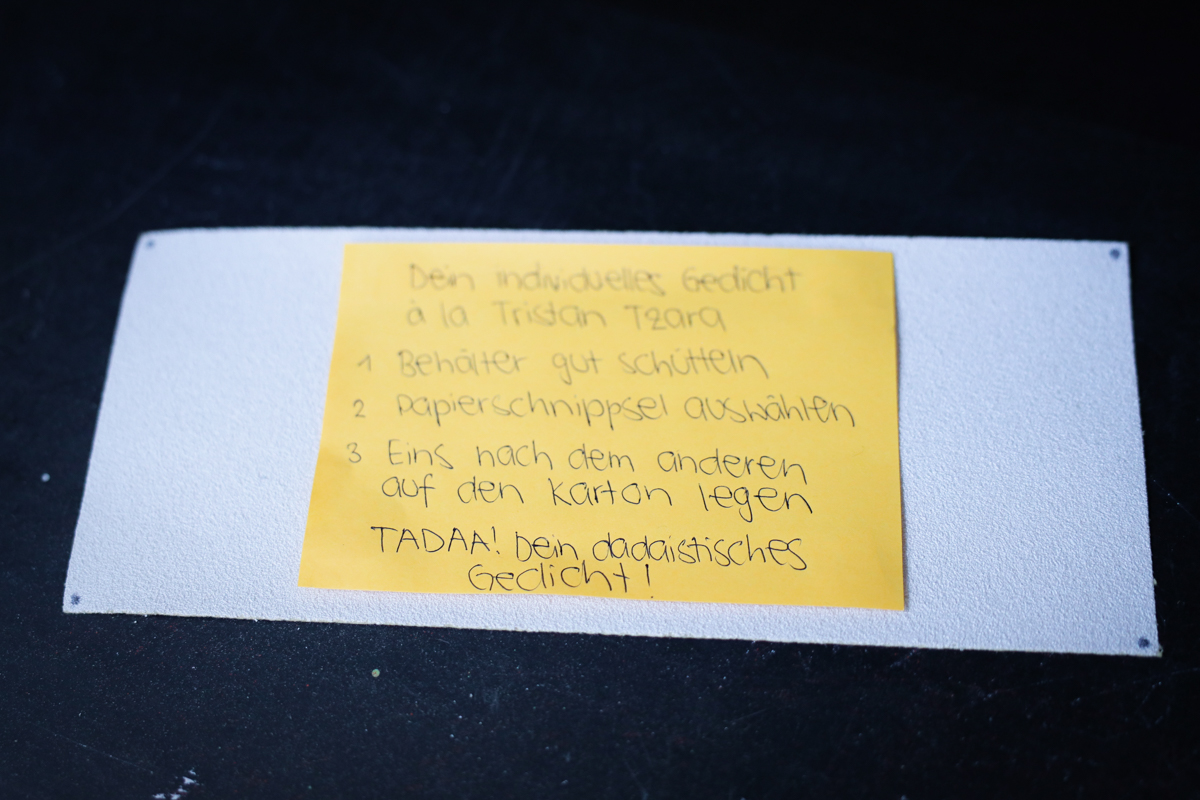 Dein individuelles Gedicht
à la Tristan Tzara
1 Behälter gut schütteln
2 Papierschnippsel auswählen
3 Eins nach dem anderen
auf den Karton legen
TADAA! Dein dadaistisches
Gedicht!